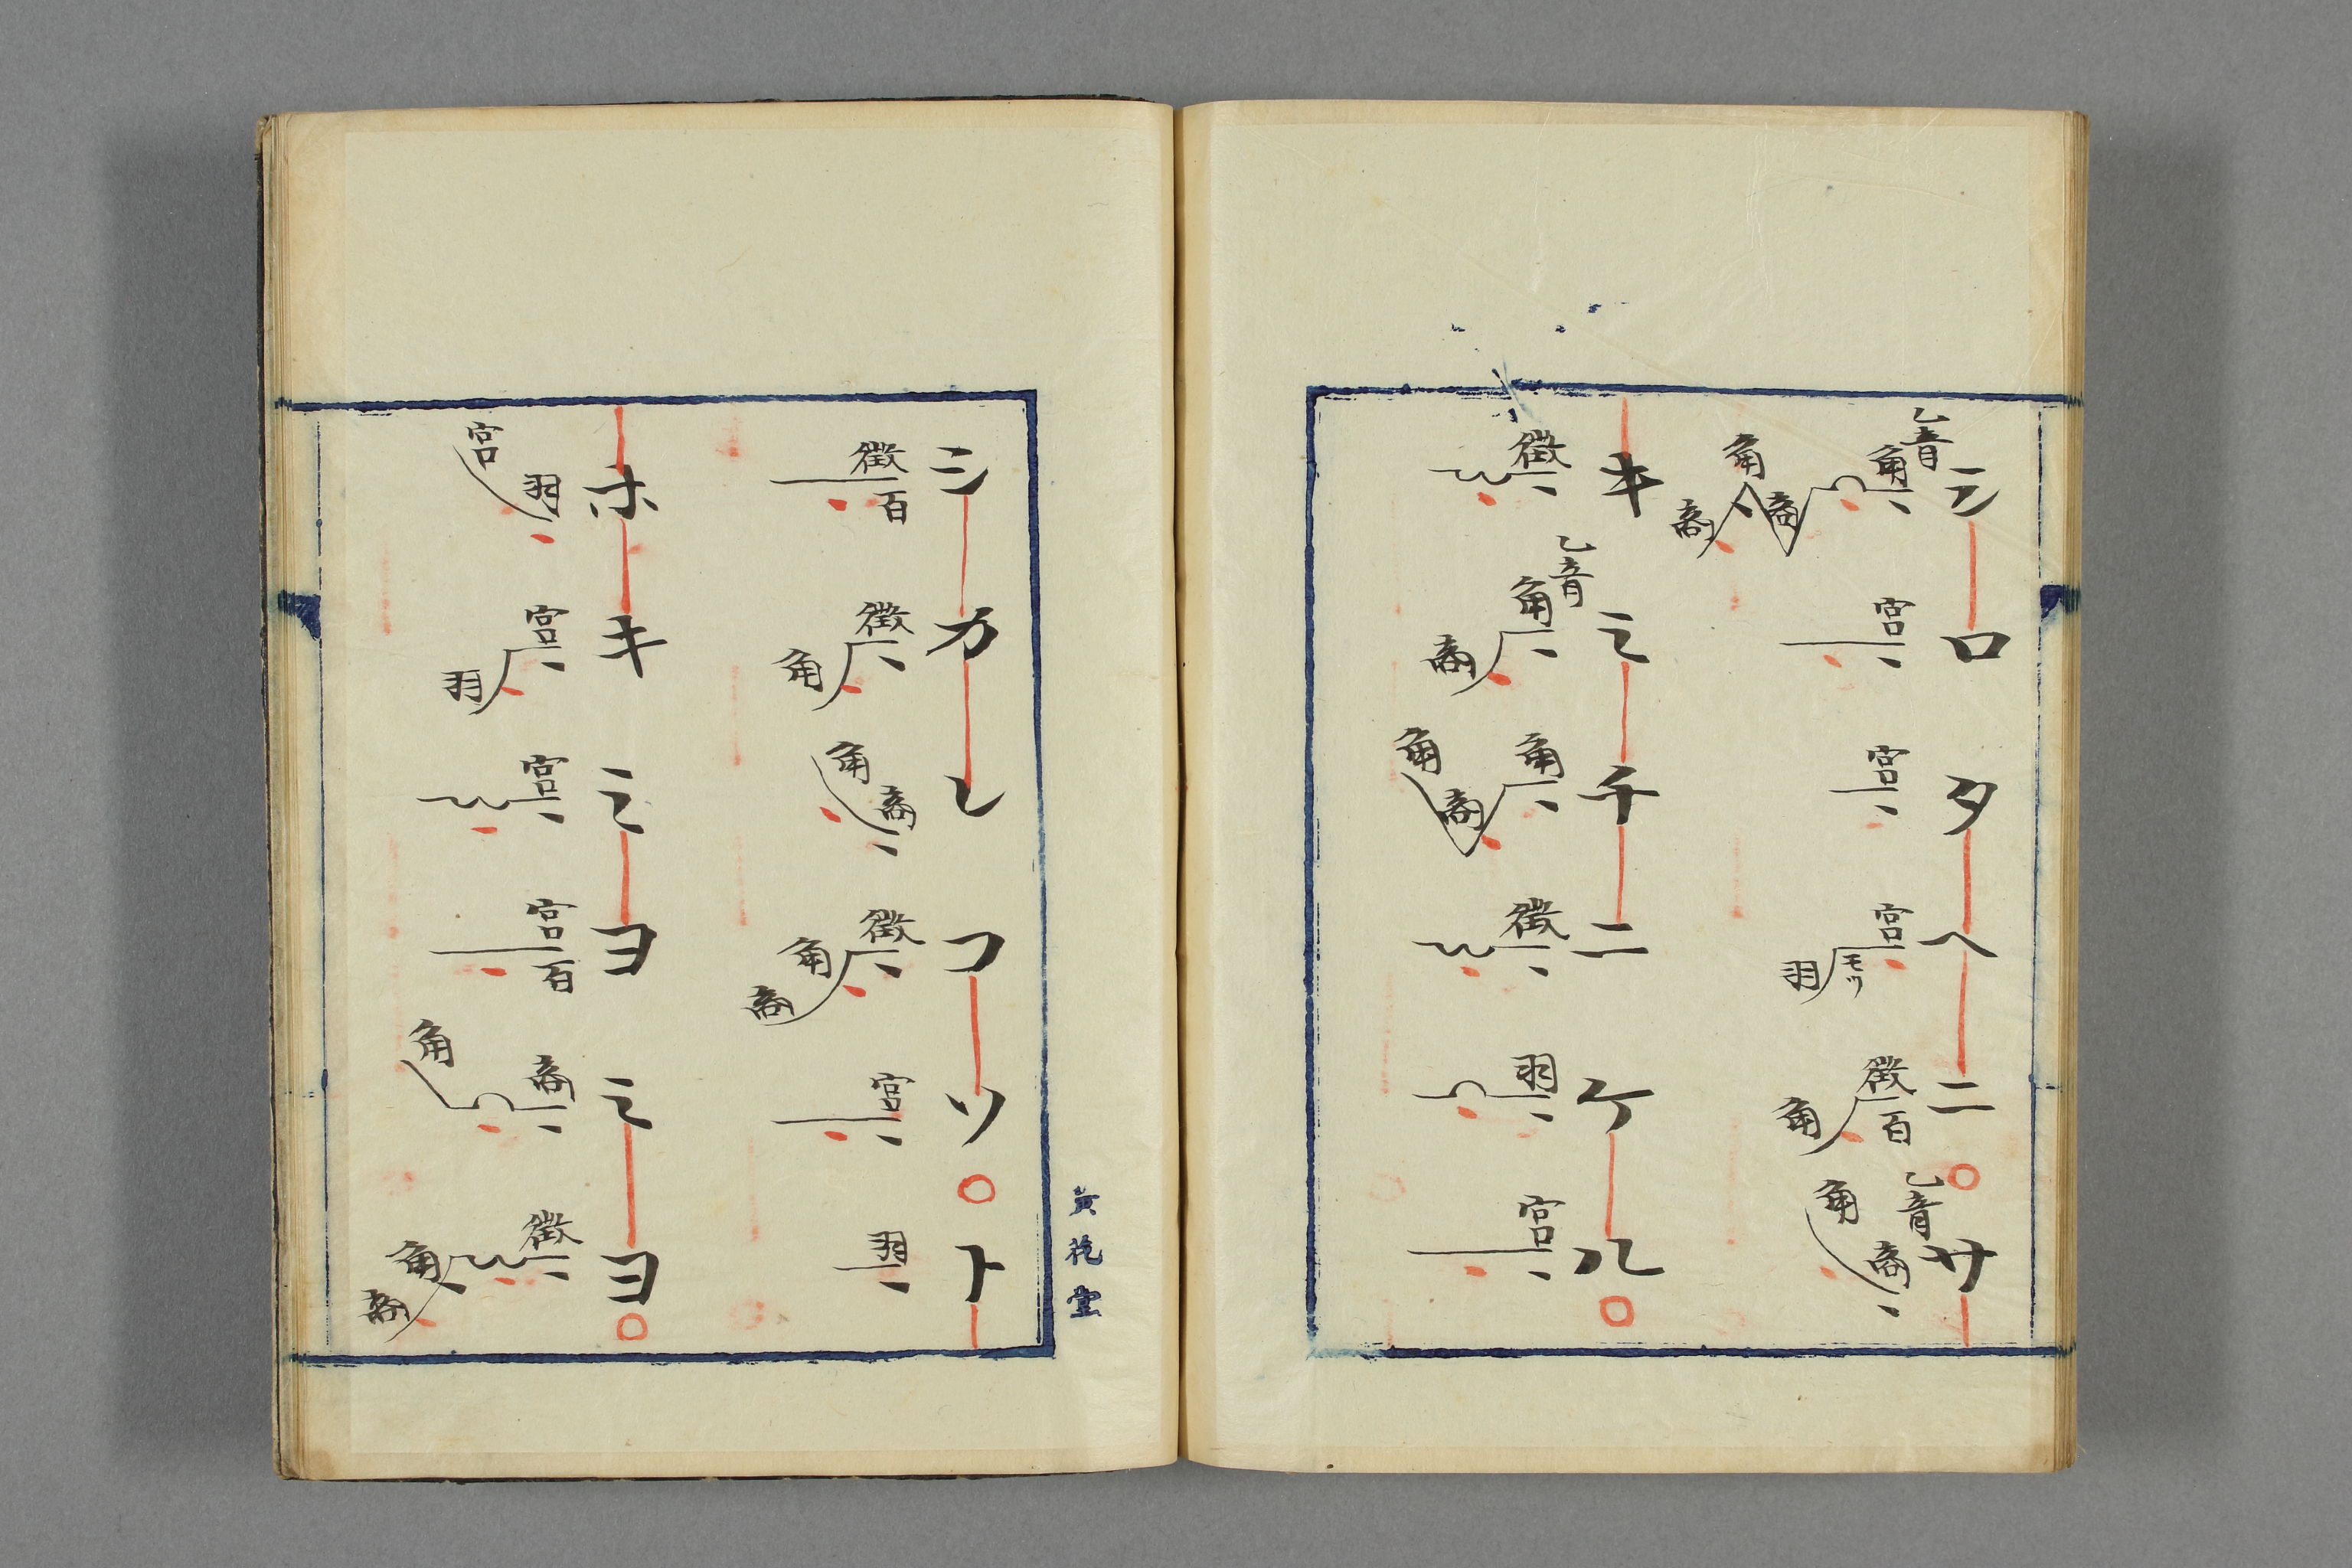 シロタヘニ○サ
乙音 角 商 角 商 宮 宮 宮 モツ 羽 徴 百 角 乙音 商 角
キミチニケル○
徴 乙音 角 商 角 商 角 徴 羽 宮
シカレコソ○ト
徴 百 徴 角 商 角 徴 角 商 宮 羽
ホキミヨミヨ○
羽 宮 宮 羽 宮 宮 百 商 角 徴 角 商